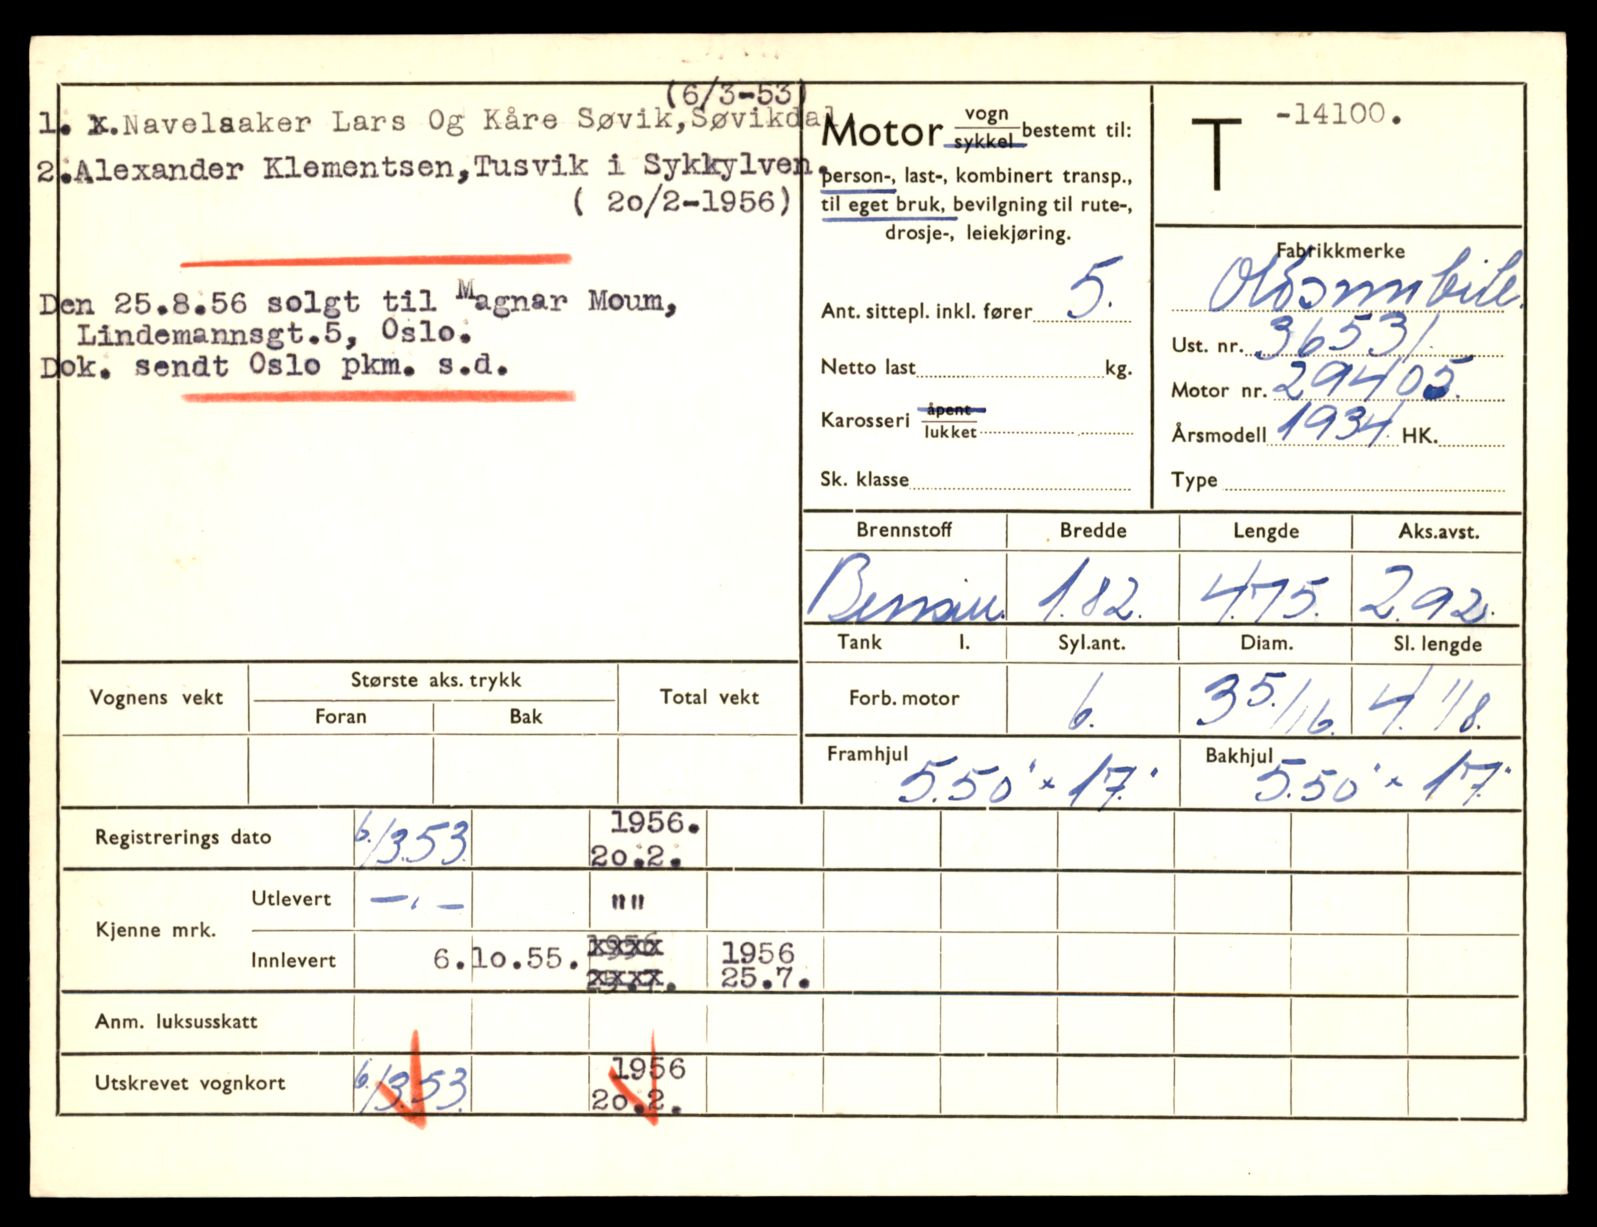 (6/3-53)
1. x.Navelsaker Lars Og Kåre Søvik,Søvikdal
2.Alexander Klementsen,Tusvik i Sykkylven.
( 2o/2-1956)
Den 25.8.56 solgt til Magnar Moum,
Lindemannsgt.5, Oslo.
Dok. sendt Oslo pkm. s.d.
Motor vogn sykkel bestemt til:
person-, last-, kombinert transp.,
til eget bruk, bevilgning til rute-,
drosje-, leiekjøring.
Ant. sittepl. inkl. fører 5.
Netto last kg.
Karosseri åpent lukket
Sk. klasse
T -14100.
Fabrikkmerke
Oldsmobile.
Ust. nr. 36531.
Motor nr. 29405.
Årsmodell 1934. HK.
Type
Brennstoff Bredde Lengde Aks.avst.
Bensin. 1.82. 4.75. 2.92.
Tank l. Syl.ant. Diam. Sl. lengde
Forb. motor 6. 3 5/16. 4. 1/8.
Framhjul 5.50" x 17." Bakhjul 5.50" x 17."
Vognens vekt Største aks. trykk Total vekt
Foran Bak
Registrerings dato 6./3.53. 1956. 2o.2.
Kjenne mrk.
Utlevert —.— ""
Innlevert 6.1o.55. 1956 25.7. 1956 25.7.
Anm. luksusskatt
Utskrevet vognkort 6./3.53. 1956 2o.2.